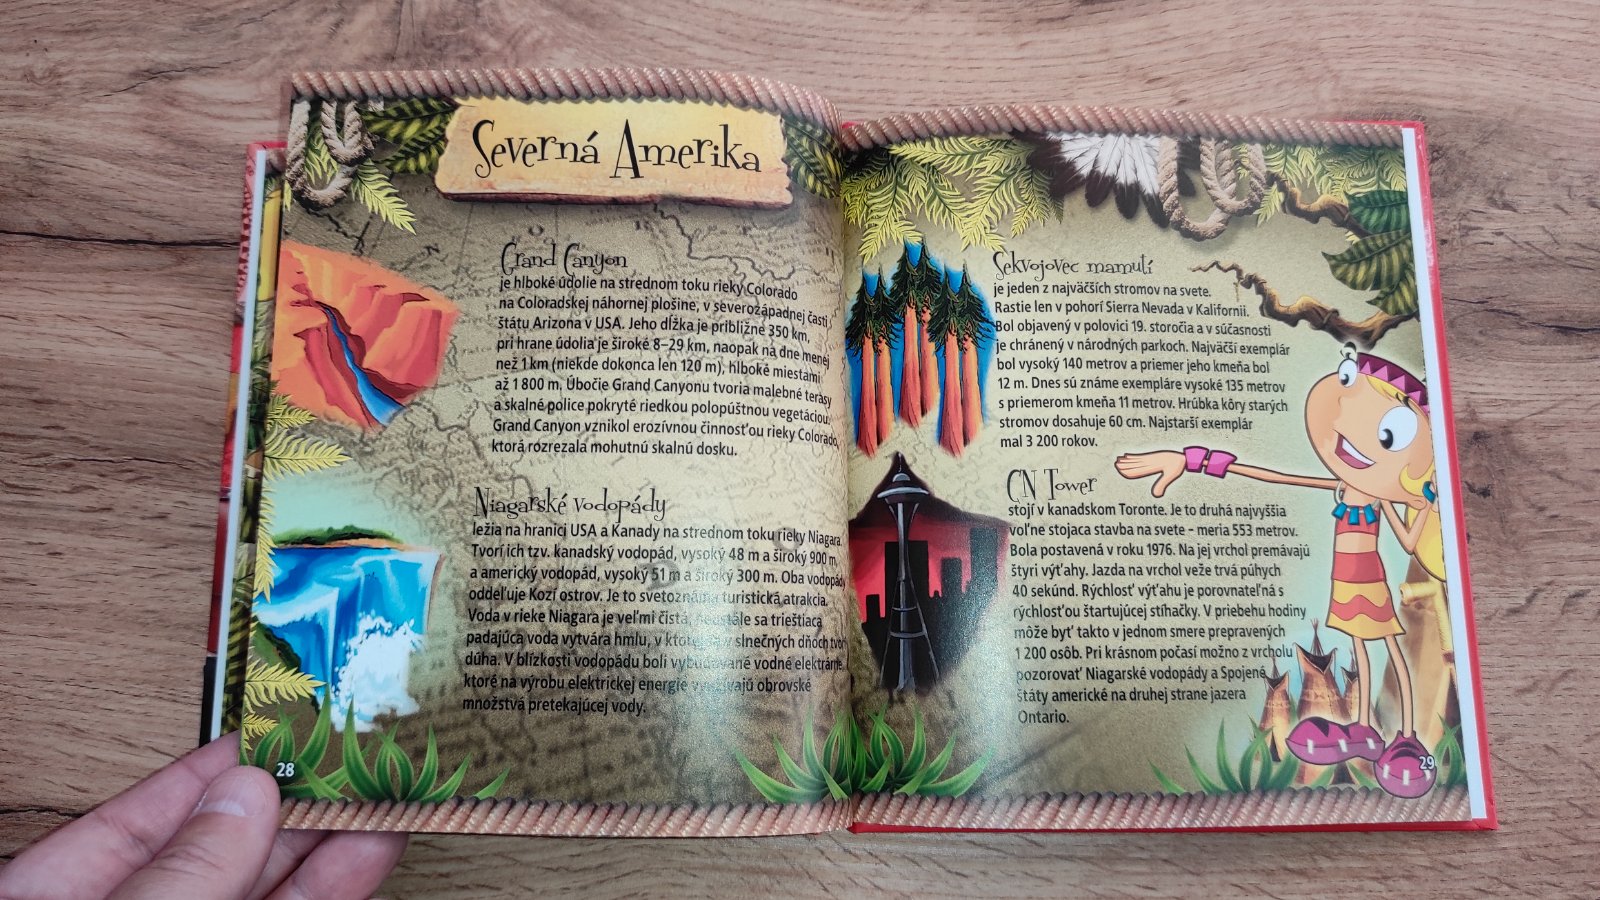 Severná Amerika
Grand Canyon
je hlboké údolie na strednom toku rieky Colorado
na Coloradskej náhornej plošine, v severozápadnej časti
štátu Arizona v USA. Jeho dĺžka je približne 350 km,
pri hrane údolia je široké 8–29 km, naopak na dne menej
než 1 km (niekde dokonca len 120 m), hlboké miestami
až 1 800 m. Úbočie Grand Canyonu tvoria malebné terasy
a skalné police pokryté riedkou polopúštnou vegetáciou.
Grand Canyon vznikol erozívnou činnosťou rieky Colorado,
ktorá rozrezala mohutnú skalnú dosku.
Niagarské vodopády
ležia na hranici USA a Kanady na strednom toku rieky Niagara.
Tvorí ich tzv. kanadský vodopád, vysoký 48 m a široký 900 m
a americký vodopád, vysoký 51 m a široký 300 m. Oba vodopády
oddeľuje Kozí ostrov. Je to svetoznáma turistická atrakcia.
Voda v rieke Niagara je veľmi čistá, neustále sa trieštiaca
padajúca voda vytvára hmlu, v ktorej sa v slnečných dňoch tvorí
dúha. V blízkosti vodopádu boli vybudované vodné elektrárne,
ktoré na výrobu elektrickej energie využívajú obrovské
množstvá pretekajúcej vody.
28
Sekvojovec mamutí
je jeden z najväčších stromov na svete.
Rastie len v pohorí Sierra Nevada v Kalifornii.
Bol objavený v polovici 19. storočia a v súčasnosti
je chránený v národných parkoch. Najväčší exemplár
bol vysoký 140 metrov a priemer jeho kmeňa bol
12 m. Dnes sú známe exempláre vysoké 135 metrov
s priemerom kmeňa 11 metrov. Hrúbka kôry starých
stromov dosahuje 60 cm. Najstarší exemplár
mal 3 200 rokov.
CN Tower
stojí v kanadskom Toronte. Je to druhá najvyššia
voľne stojaca stavba na svete - meria 553 metrov.
Bola postavená v roku 1976. Na jej vrchol premávajú
štyri výťahy. Jazda na vrchol veže trvá púhych
40 sekúnd. Rýchlosť výťahu je porovnateľná s
rýchlosťou štartujúcej stíhačky. V priebehu hodiny
môže byť takto v jednom smere prepravených
1 200 osôb. Pri krásnom počasí možno z vrcholu
pozorovať Niagarské vodopády a Spojené
štáty americké na druhej strane jazera
Ontario.
29